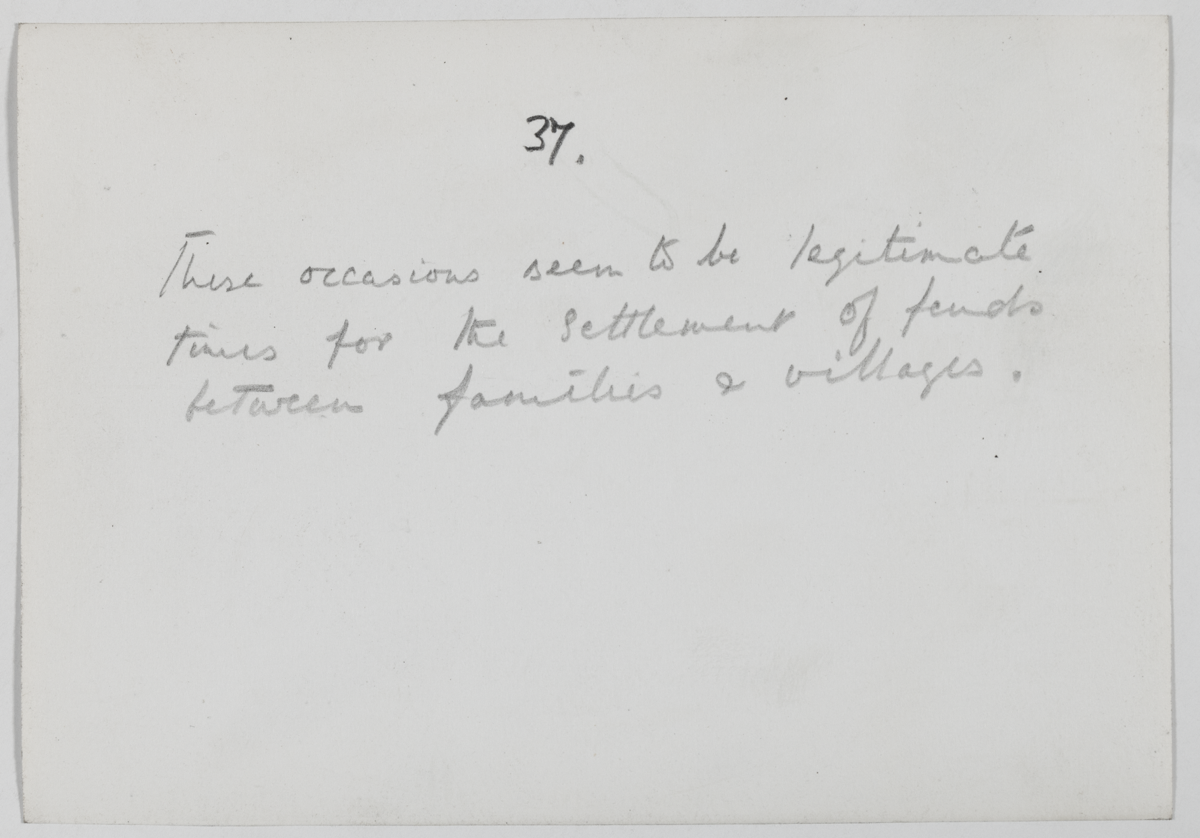 37.
These occasions seem to be legitimate
times for the settlement of feuds
between families & villages.